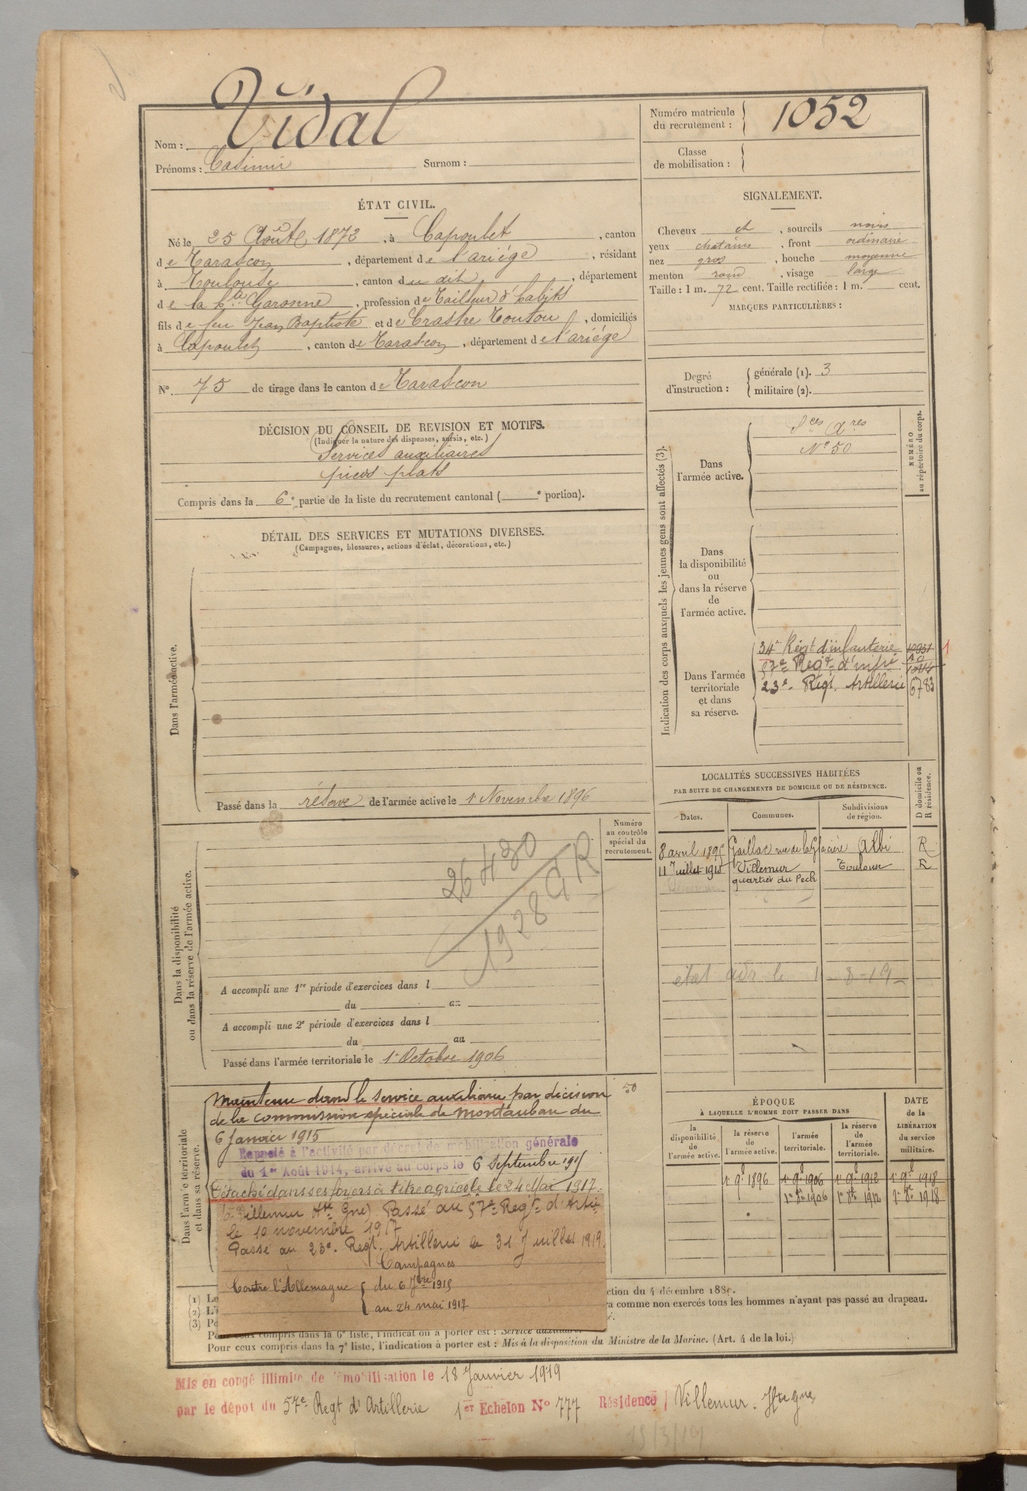 Vidal
Nom :
Prénoms : Casimir Surnom :
Numéro matricule du recrutement : 1052
Classe de mobilisation :
ÉTAT CIVIL.
Né le 25 Août 1872, à Capoulet, canton
de Tarascon, département de l'ariége, résidant
à Toulouse, canton du dit, département
de la hte Garonne, profession de Tailleur d'habits
fils de feu Jean Baptiste et de Toutou, domiciliés
à Capoulet, canton de Tarascon, département de l'ariége
N° 75 de tirage dans le canton de Tarascon
SIGNALEMENT.
Cheveux ch, sourcils noirs
yeux chatains, front ordinaire
nez gros, bouche moyenne
menton rond, visage large
Taille : 1 m. 72 cent. Taille rectifiée : 1 m. cent.
MARQUES PARTICULIÈRES :
Degré d'instruction : générale (1). 3
militaire (2).
DÉCISION DU CONSEIL DE REVISION ET MOTIFS.
(Indiquer la nature des dispenses, sursis, etc.)
Services auxiliaires
pieds plats
Compris dans la 6e partie de la liste du recrutement cantonal ( e portion).
DÉTAIL DES SERVICES ET MUTATIONS DIVERSES.
(Campagnes, blessures, actions d'éclat, décorations, etc.)
Dans l'armée active.
Passé dans la réserve de l'armée active le 1 Novembre 1896
Indication des corps auxquels les jeunes gens sont affectés (3).
NUMÉRO au répertoire du corps.
Dans l'armée active.
Sces Ares
N° 50
Dans la disponibilité ou dans la réserve de l'armée active.
Dans l'armée territoriale et dans sa réserve.
34e Régt d'infanterie
57e Regt d'infie
23e Regt Artillerie 6783
1
LOCALITÉS SUCCESSIVES HABITÉES
PAR SUITE DE CHANGEMENTS DE DOMICILE OU DE RÉSIDENCE.
Dates. Communes. Subdivisions de région. D domicile ou R résidence.
8 avril Gaillac rue de la Glacière Albi R
11 Juillet Villemur Toulouse R
quartier du Pech
Numéro au contrôle spécial du recrutement.
26430
1928 GR
Dans la disponibilité ou dans la réserve de l'armée active.
A accompli une 1re période d'exercices dans l
du au
A accompli une 2e période d'exercices dans l
du au
Passé dans l'armée territoriale le 1 Octobre 1906
etat le 1 - 8 - 19
50
Dans l'armée territoriale et dans sa réserve.
Maintenu dans le service auxiliaire par décision
de la commission spéciale de Montauban du
6 Janvier 1915
Rappelé à l'activité par décret de mobilisation générale
du 1er Août 1914, arrivé au corps le 6 septembre 1915
Détaché dans ses foyers à titre agricole le 24 Mai 1917
Villemur Hte Gne) Passé au 57e Regt d'Artie
le 10 novembre 1917
Passé au 23e Regt Artillerie le 31 Juillet 1919
Campagnes
Contre l'Allemagne du 6 7bre 1915
au 24 mai 1917
ÉPOQUE
À LAQUELLE L'HOMME DOIT PASSER DANS
DATE de la LIBÉRATION du service militaire.
la disponibilité de l'armée active.
la réserve de l'armée active.
l'armée territoriale.
la réserve de l'armée territoriale.
1 9e 1896 1 9e 1906 1 9e 1912 1 9e 1918
1906 1912 1918
ction du 4 décembre 188
a comme non exercés tous les hommes n'ayant pas passé au drapeau.
(1) Le
(2) L'
(3) Po
Pour ceux compris dans la 6e liste, l'indication à porter est : Service auxiliaire.
Pour ceux compris dans la 7e liste, l'indication à porter est : Mis à la disposition du Ministre de la Marine. (Art. 4 de la loi.)
Mis en congé illimité de démobilisation le 18 Janvier 1919
par le dépôt du 57e Regt d'Artillerie 1er Echelon N° 777 Résidence Villemur. Hte Gne